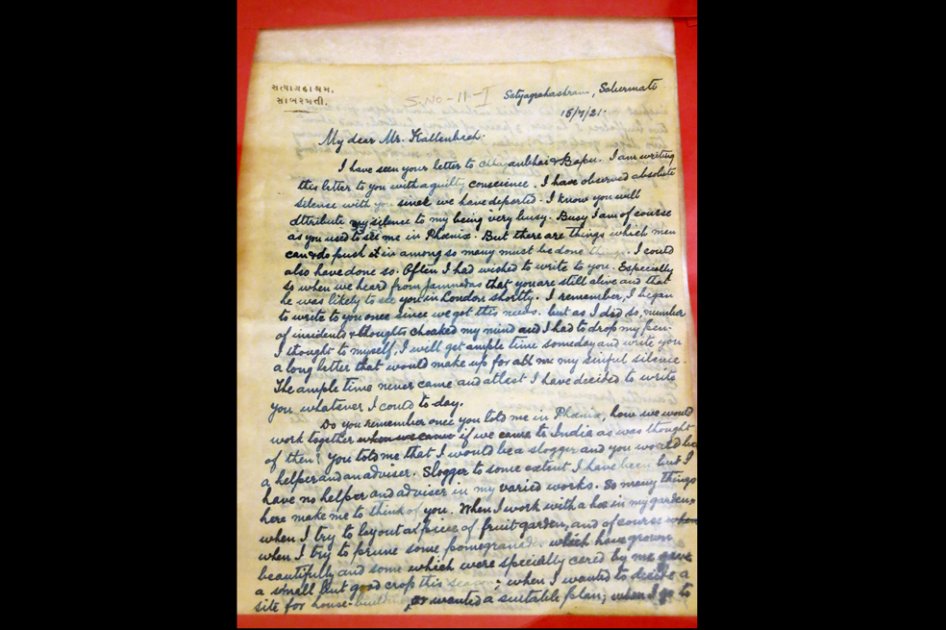 સત્યાગ્રહાશ્રમ,
સાબરમતી.
S.No-11-I
Satyagrahashram, Sabermati
15/7/21.
My dear Mr. Kallenbach.
I have seen your letter to Chhaganbhai & Bapu. I am writing
this letter to you with a guilty conscience. I have observed absolute
silence with you since we have departed. I know you will
attribute my silence to my being very busy. Busy I am of course
as you used to see me in Phœnix. But there are things which men
can & do push it in among so many must be done things. I could
also have done so. Often I had wished to write to you. Especially
so when we heard from Jamnadas that you are still alive and that
he was likely to see you in London shortly. I remember, I began
to write to you once since we got this news. but as I did so, number
of incidents & thoughts choaked my mind and I had to drop my pen.
I thought to myself, I will get ample time someday and write you
a long letter that would make up for all my sinful silence.
The ample time never came and atlast I have decided to write
you whatever I could to day.
Do you remember once you told me in Phœnix, how we would
work together when we came if we came to India as was thought
of then? you told me that I would be a slogger and you would be
a helper and an adviser. Slogger to some extent I have been but I
have no helper and adviser in my varied works. So many things
here make me to think of you. When I work with a hoe in my garden,
when I try to layout a piece of fruit garden, and of course when
when I try to prune some pomegranades which have grown
beautifully and some which were specially cared by me gave
a small but good crop this season; when I wanted to decide a
site for house-building or wanted a suitable plan; when I go to